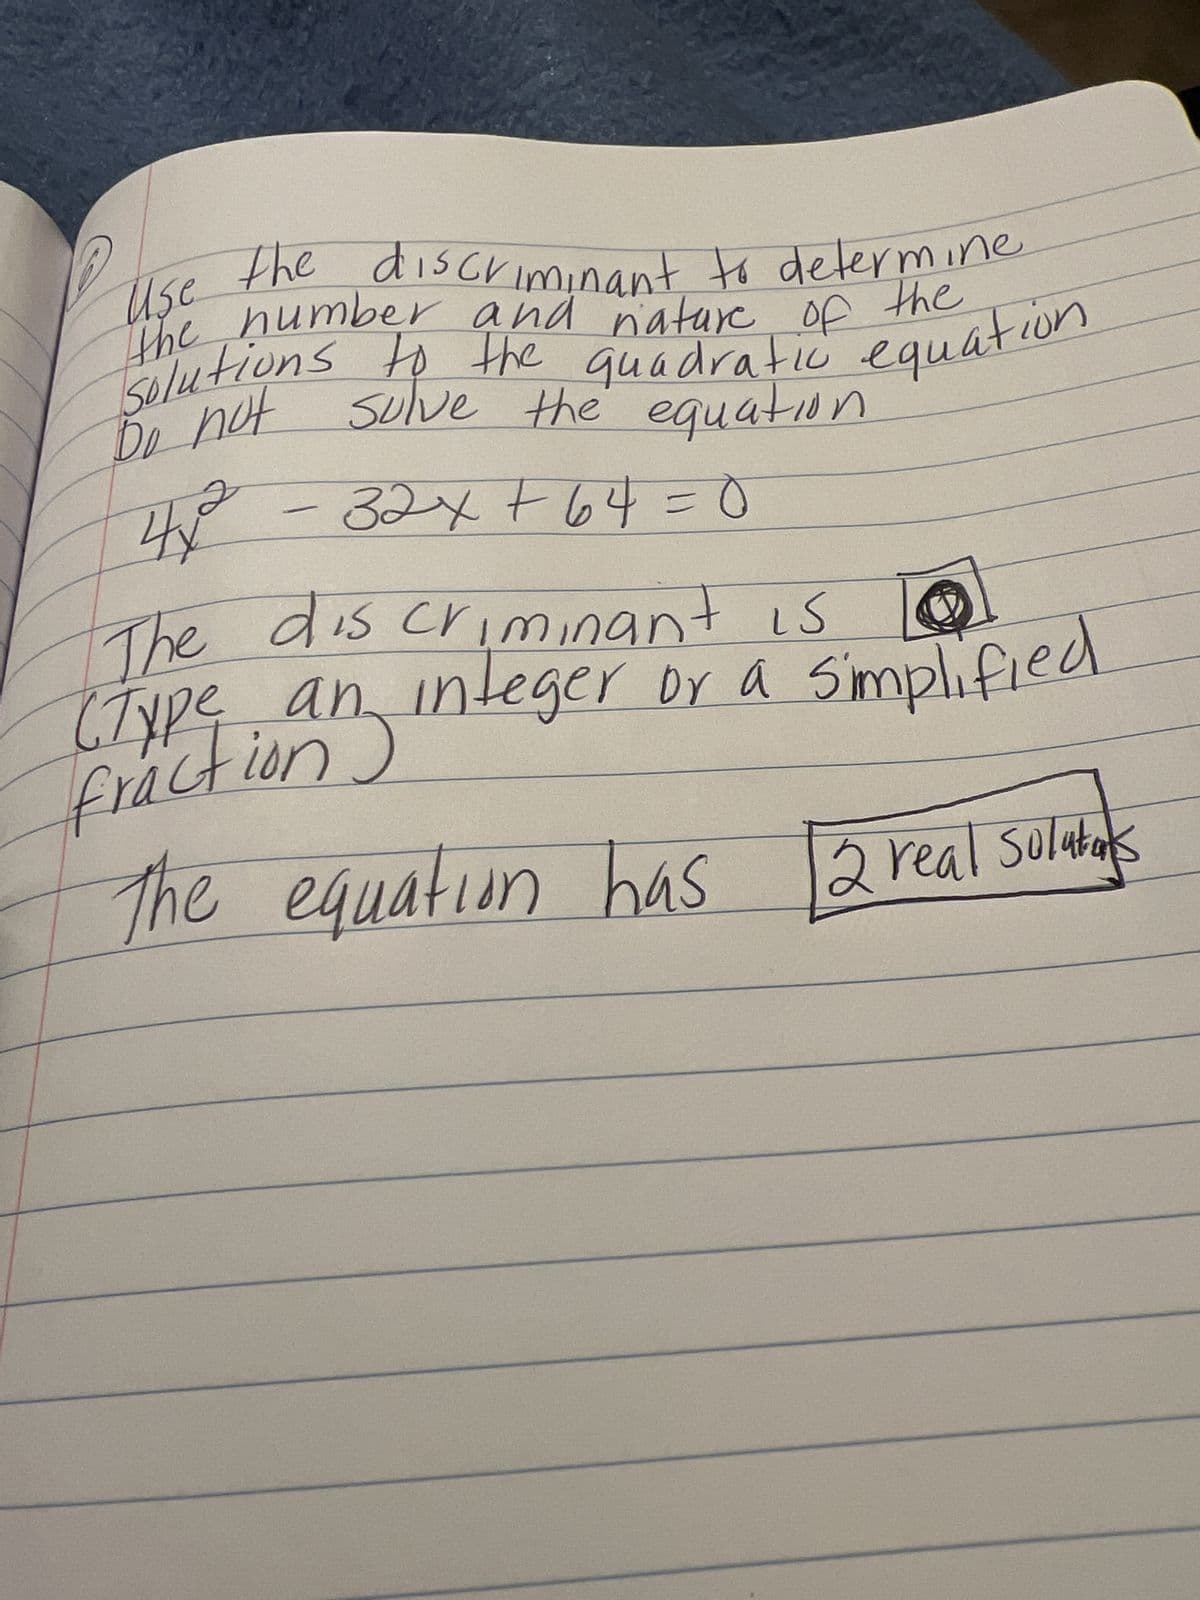 6
Use the discriminant to determine
the number and nature of the
solutions to the quadratic equation
Do not solve the equation
4x² - 32x + 64 = 0
The discriminant is
(Type an integer or a simplified
fraction)
The equation has 2 real solutions